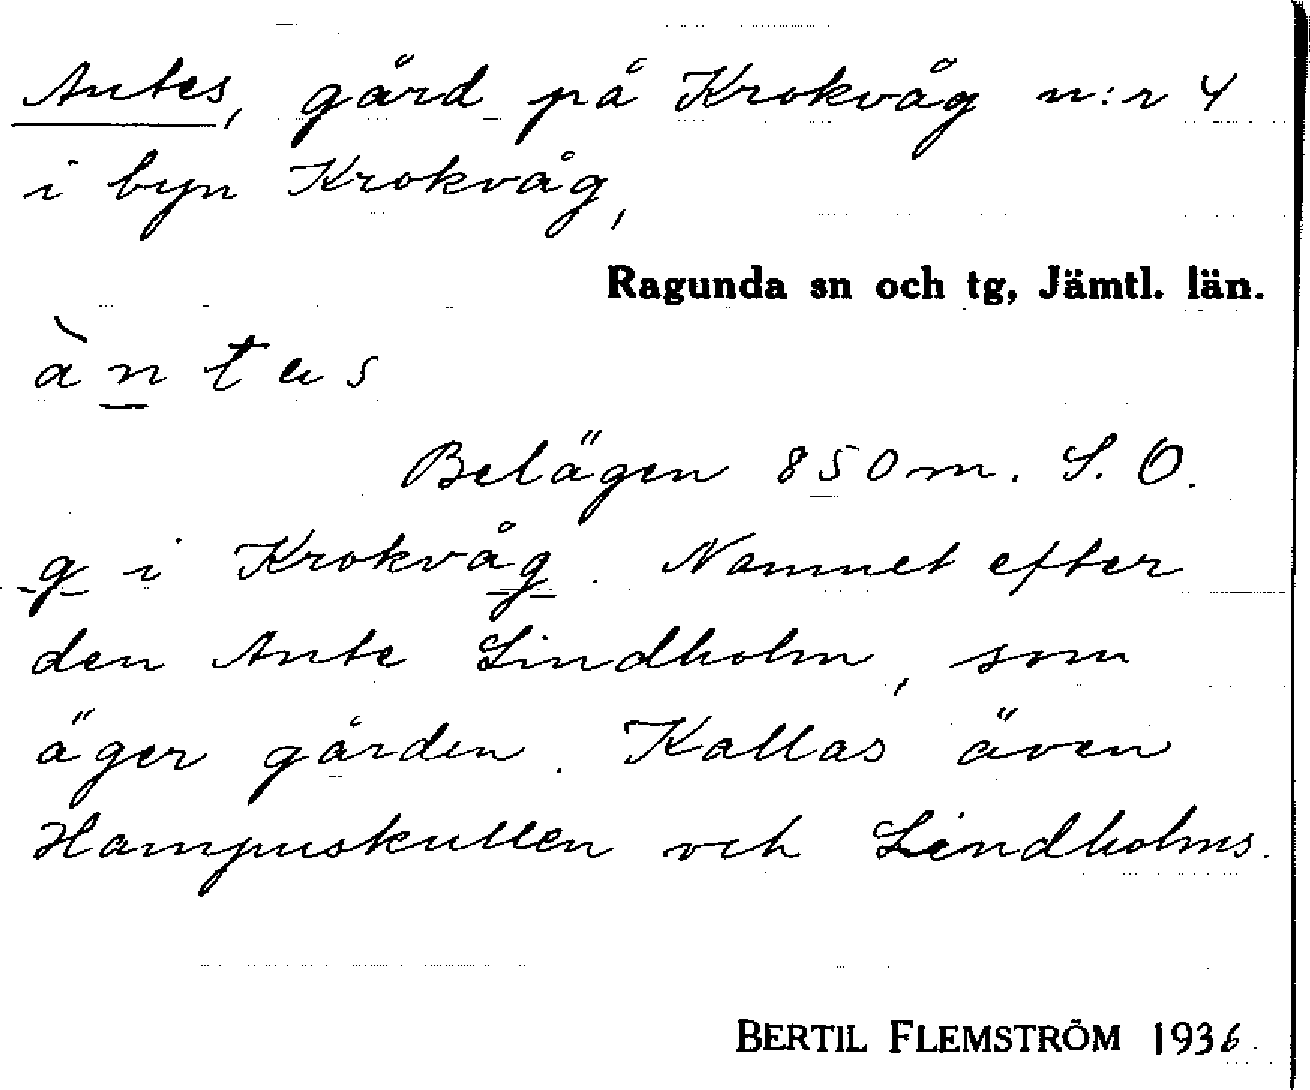 Antes, gård på Krokvåg n:r 4
i byn Krokvåg,
Ragunda sn och tg, Jämtl. län.
àntas
Belägen 850 m. S. O.
g i Krokvåg. Namnet efter
den Ante Lindholm, som
äger gården. Kallas även
Hampuskullen och Lindholms.
BERTIL FLEMSTRÖM 1936.